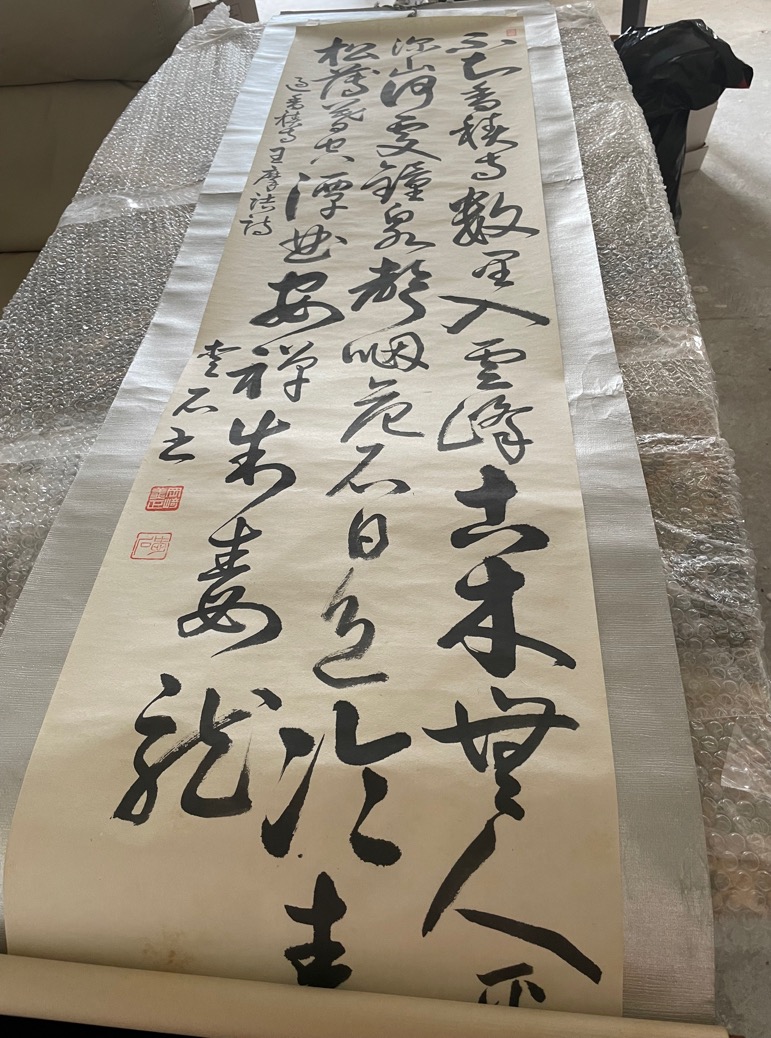 不知香積寺數里入雲峰古木無人
深山何處鐘泉聲咽危石日色冷青
松薄暮空潭曲安禪制毒龍
過香積寺王摩詰詩
石書